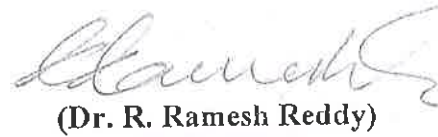 (Dr. R. Ramesh Reddy)